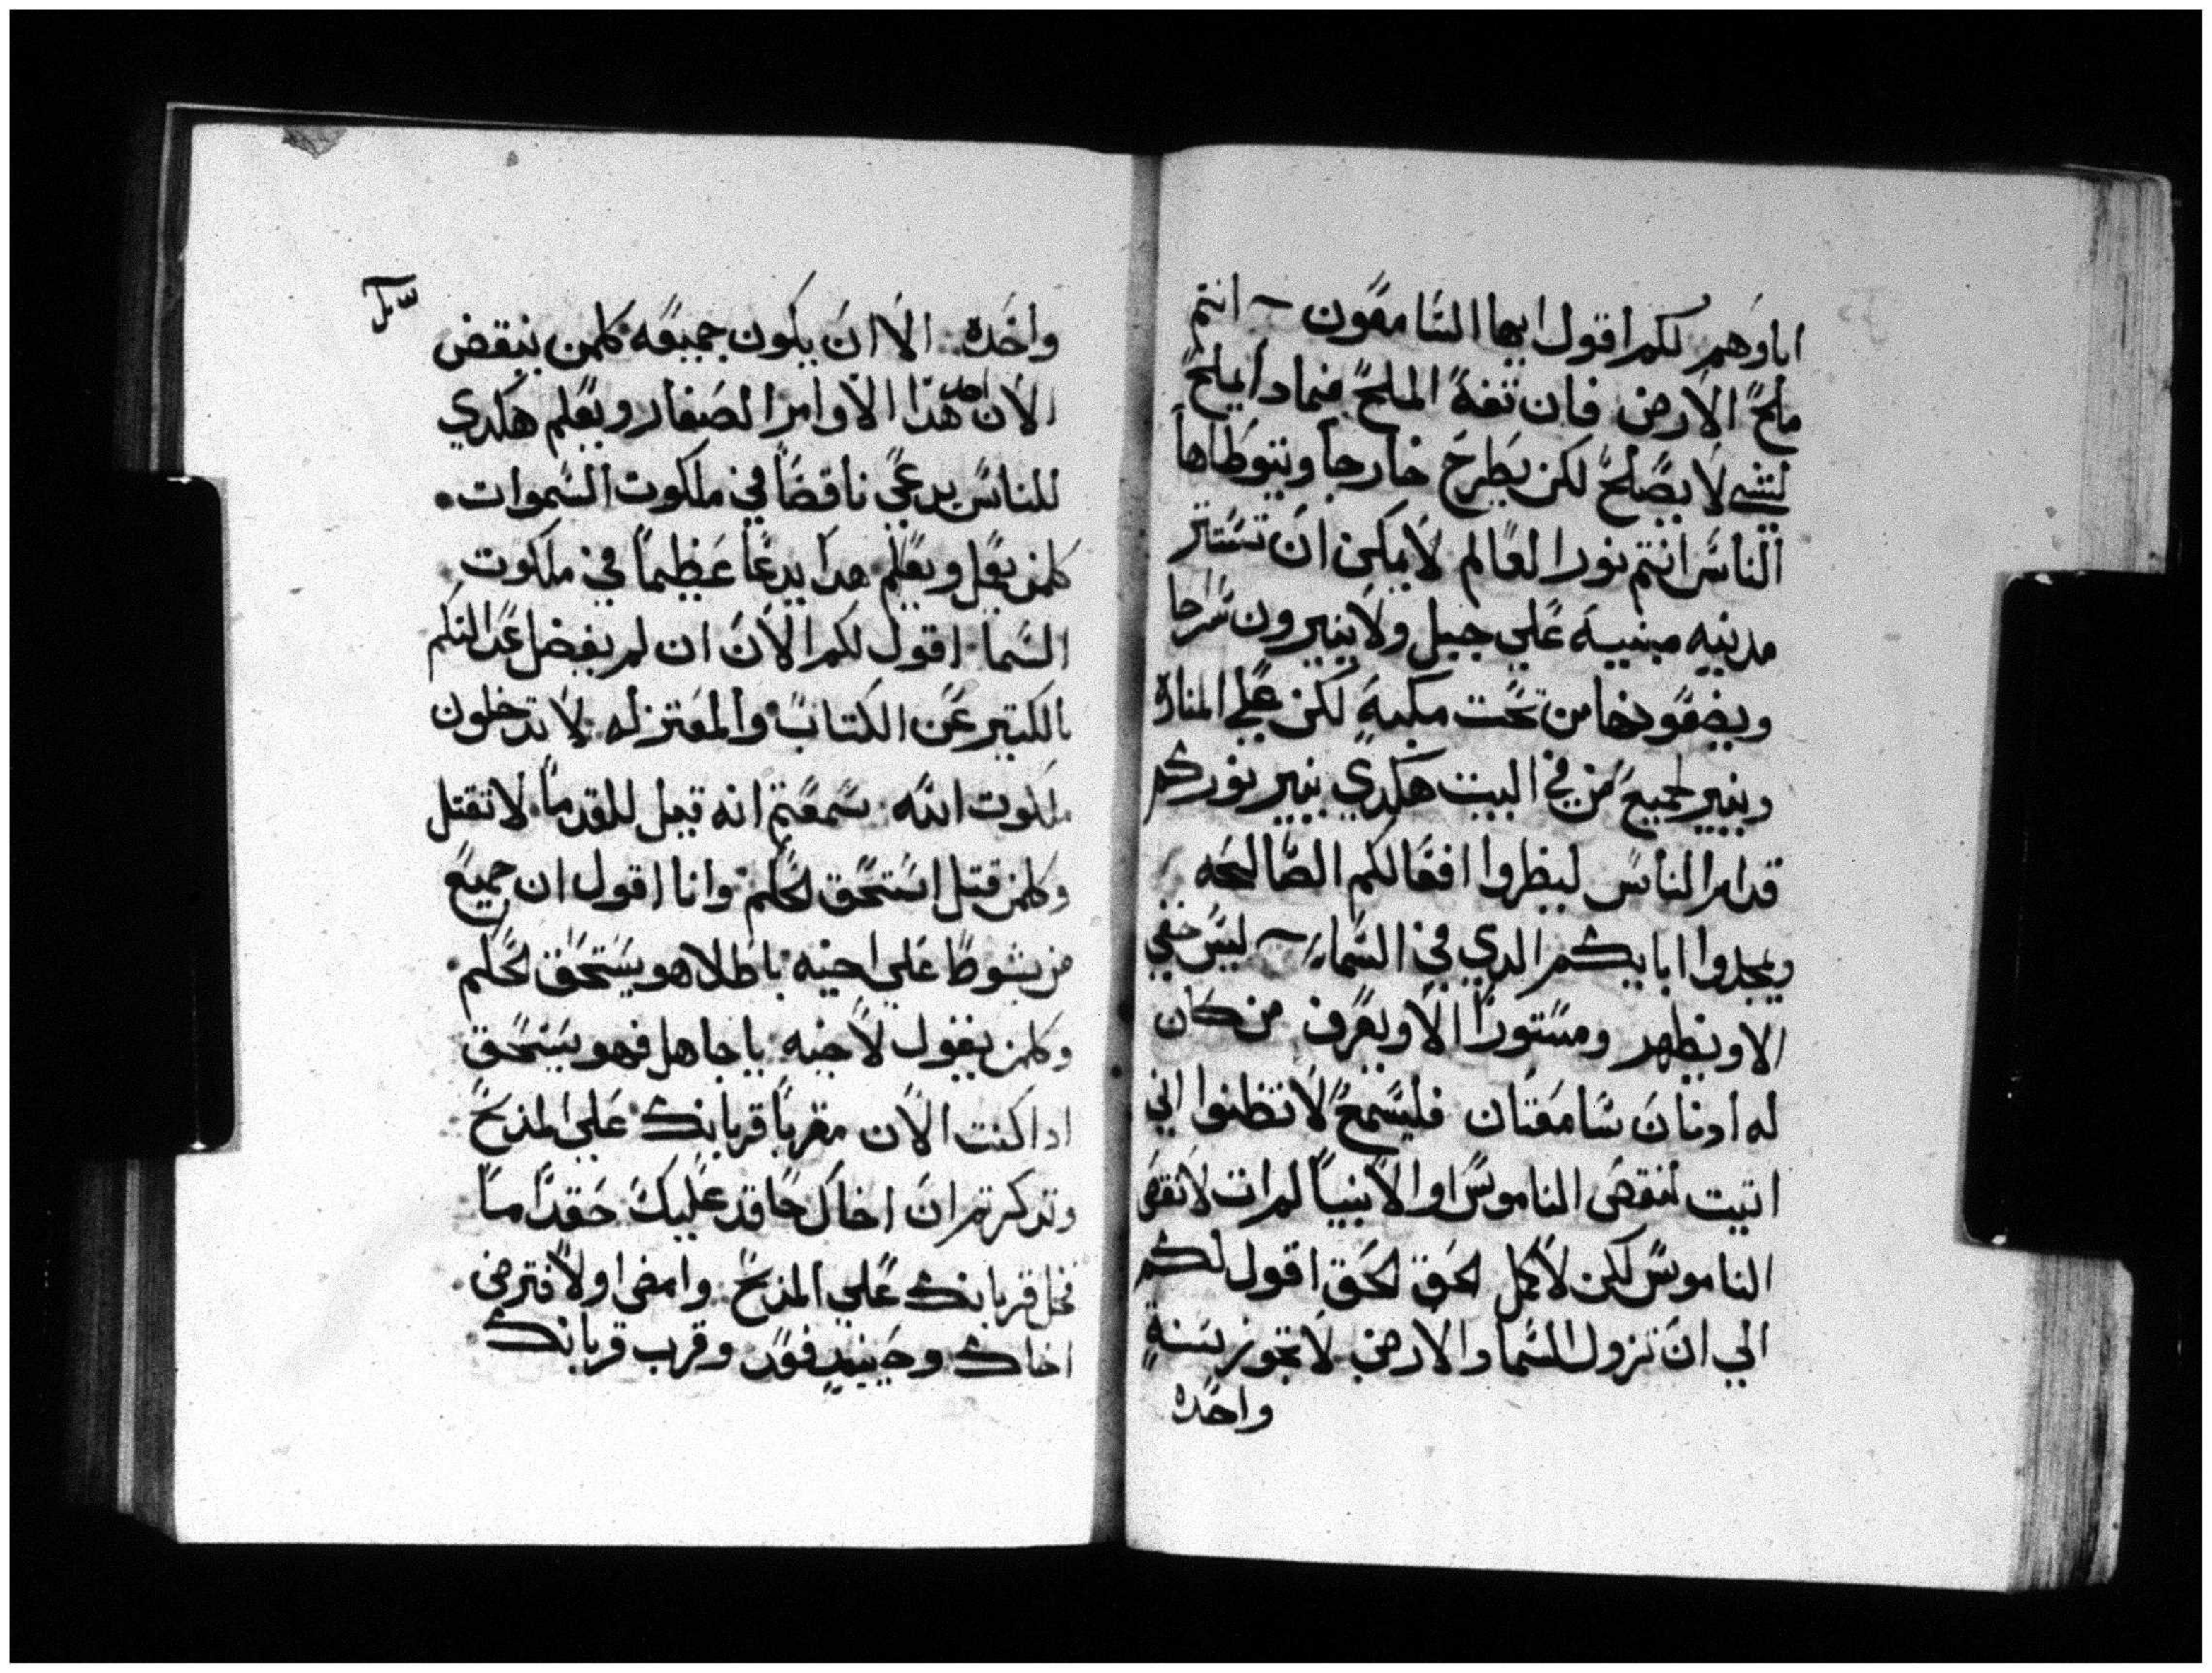 اباوهم لكم اقول ايها السامعون ~ انتم
ملح الارض فان تفه الملح فبمادا يملح
لشي لا يصلح لكن يطرح خارجا ويتوطاها
الناس انتم نور العالم لا يمكن ان تستتر
مدينيه مبنييه علي جبل ولا ينيرون سراجا
ويضعونها من تحت مكيية لكن علي المناره
وينير لجميع من في البيت هكدي ينير نوركم
قدام الناس لينظروا افعالكم الصالحه
ويمجدوا ابايكم الدي في السماء ~ ليس خفي
الا ويظهر ومستورا الا ويعرف من كان
له ادنان سامعتان فليسمع لا تظنوا اني
اتيت لنقض الناموس او الانبيا لم ات لانقض
الناموس لكن لاكمل لحق لحق اقول لكم
الي ان تزول السما والارض لا تجوز سنة
واحده
واحده الا ان يكون جميعه كلمن ينقض
الان احد هدا الاوامر الصغار ويعلم هكدي
للناس يدعي ناقصا في ملكوت السموات
كلمن يعل ويعلم هدا يدعا عظيما في ملكوت
السما اقول لكم الان ان لم يفضل عدالتكم
بالكتير عن الكتاب والمعتزله لا تدخلون
ملكوت الله سمعتم انه قيل للقدما لا تقتل
وكلمن قتل استحق لحكم وانا اقول ان جميع
من يشوط علي اخيه باطلا هو يستحق لحكم
وكلمن يقول لاخيه يا جاهل فهو يستحق
ادا كنت الان مقربا قربانك علي المذبح
وتدكرتم ان اخاك حاقد عليك حقدا ما
فخل قربانك علي المذبح وامضى اولا فترضى
اخاك وحينيد فود وقرب قربانك